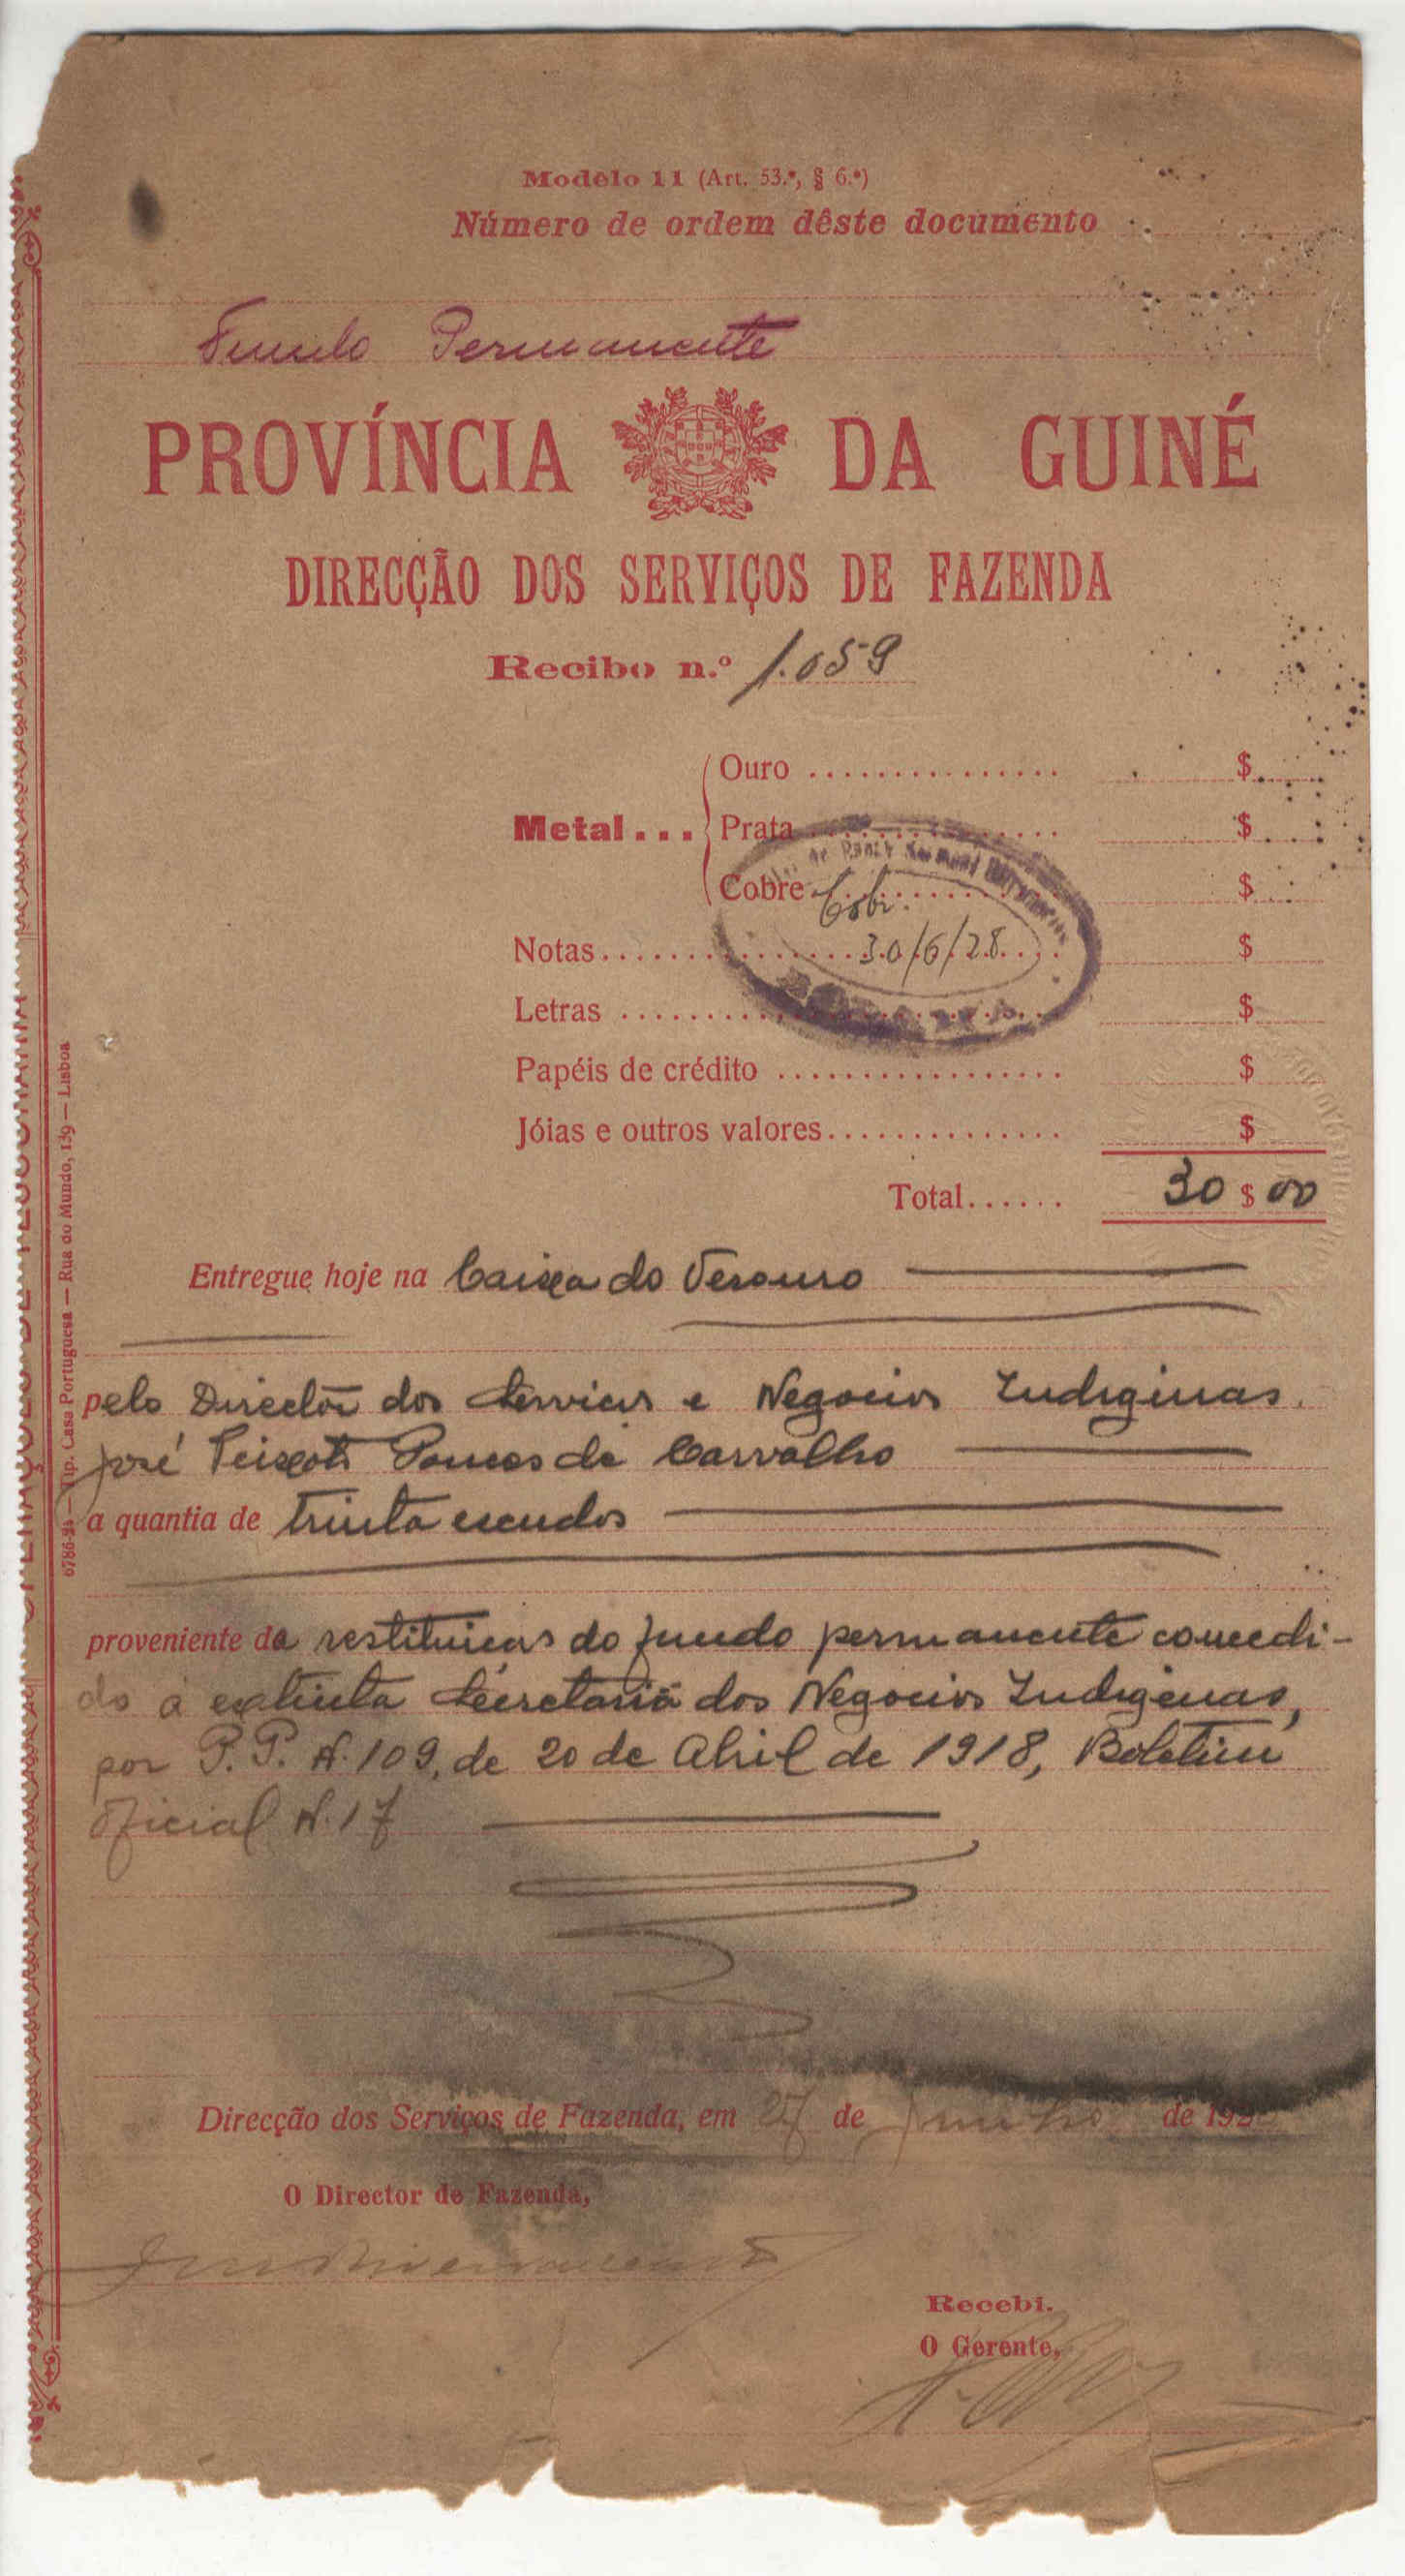 Modêlo 11 (Art. 53.º, § 6.º)
Número de ordem dêste documento
Fundo Permanente
PROVÍNCIA DA GUINÉ
DIRECÇÃO DOS SERVIÇOS DE FAZENDA
Recibo n.º 1.059
Metal...
Ouro ............... $
Prata ............... $
Cobre ............... $
Cobr.
30/6/28
Notas ............... $
Letras ............... $
Papéis de crédito ............... $
Jóias e outros valores ............... $
Total...... 30 $ 00
Entregue hoje na Caixa do Tesouro
pelo Director dos Servicos e Negocios Indiginas.
José Peixoto de Carvalho
a quantia de trinta escudos
proveniente da restituicas do fundo permanente concedi-
do á extinta Secretaria dos Negocios Indigenas,
por P. P. N. 109, de 20 de Abril de 1918, Boletim
Oficial N. 17
Direcção dos Serviços de Fazenda, em 27 de Junho de 192
O Director de Fazenda,
Recebi.
O Gerente,
Tip. Casa Portuguesa — Rua do Mundo, 139 — Lisboa